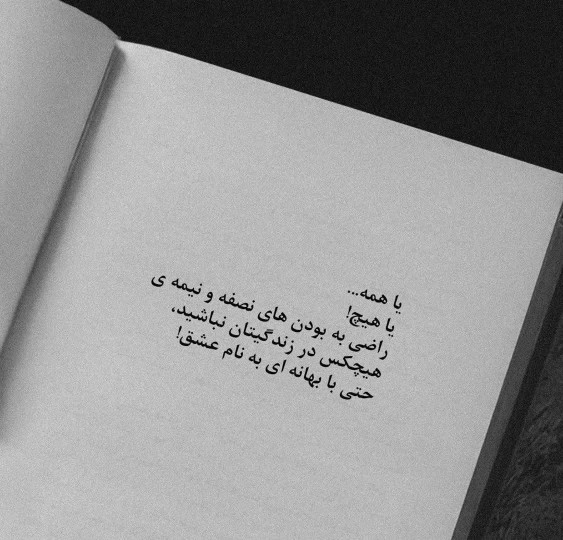 یا همه...
یا هیچ!
راضی به بودن های نصفه و نیمه ی
هیچکس در زندگیتان نباشید،
حتی با بهانه ای به نام عشق!